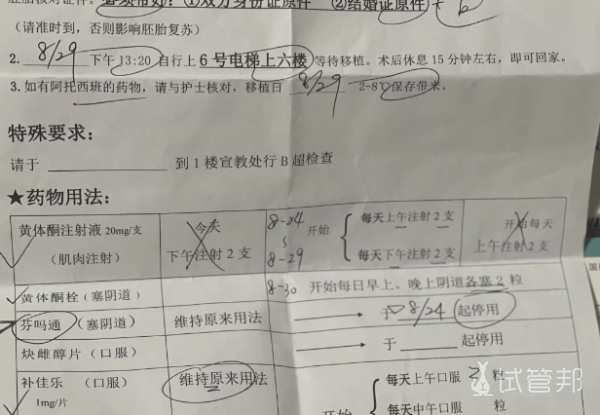 胚胎核对证件。必须带好：①双方身份证原件 ②结婚证原件+
(请准时到，否则影响胚胎复苏)
2. 8/29 下午 13:20 自行上 6 号电梯上六楼 等待移植。术后休息 15 分钟左右，即可回家。
3. 如有阿托西班的药物，请与护士核对，移植日 8/29 2-8℃保存带来。
特殊要求：
请于 ____________ 到 1 楼宣教处行 B 超检查
★药物用法：
黄体酮注射液 20mg/支
(肌肉注射)
今天
下午注射 2 支
8-24
8-29
开始
每天上午注射 2 支
每天下午注射 2 支
开始每天
上午注射 2 支
黄体酮栓（塞阴道）
8-30 开始每日早上、晚上阴道各塞 2 粒
芬吗通（塞阴道）
维持原来用法
于 8/24 起停用
炔雌醇片（口服）
于 ______ 起停用
补佳乐 （口服）
1mg/片
维持原来用法
开始
每天上午口服 2 粒
每天中午口服
试管邦